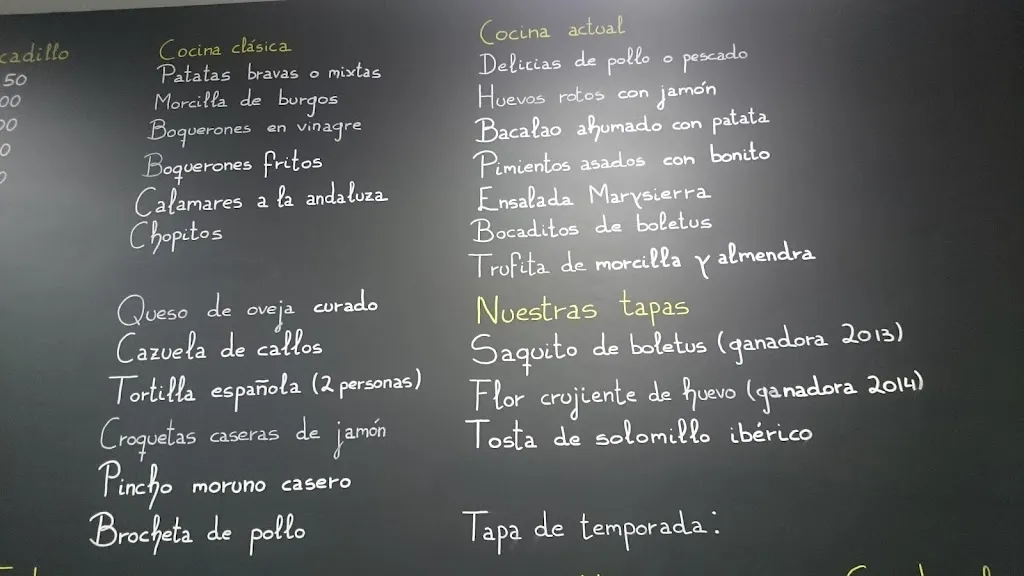 50
00
Cocina clásica
Patatas bravas o mixtas
Morcilla de burgos
Boquerones en vinagre
Boquerones fritos
Calamares a la andaluza
Chopitos
Queso de oveja curado
Cazuela de callos
Tortilla española (2 personas)
Croquetas caseras de jamón
Pincho moruno casero
Brocheta de pollo
Cocina actual
Delicias de pollo o pescado
Huevos rotos con jamón
Bacalao ahumado con patata
Pimientos asados con bonito
Ensalada Marysierra
Bocaditos de boletus
Trufita de morcilla y almendra
Nuestras tapas
Saquito de boletus (ganadora 2013)
Flor crujiente de huevo (ganadora 2014)
Tosta de solomillo ibérico
Tapa de temporada: